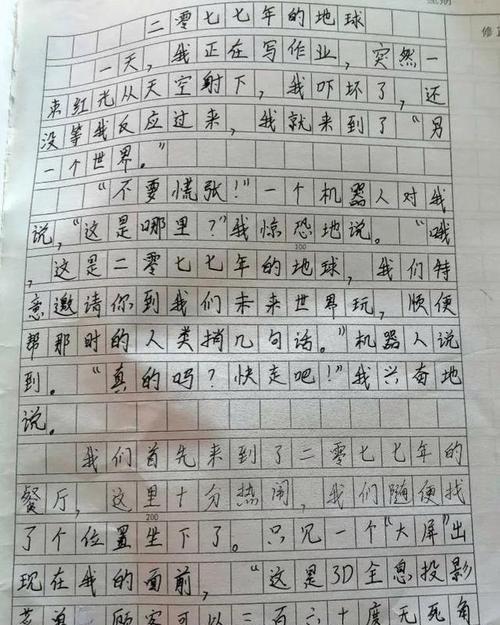 二零七七年的地球
一天，我正在写作业，突然一
束红光从天空射下，我吓坏了，还
没等我反应过来，我就来到了“另
一个世界。”
“不要慌张！”一个机器人对我
说，“这是哪里？”我惊恐地说。“哦
，这是二零七七年的地球，我们特
意邀请你到我们未来世界玩，顺便
帮那时的人类捎几句话。”机器人说
到。“真的吗？快走吧！”我兴奋地
说。
100
我们首先来到了二零七七年的
餐厅，这里十分热闹，我们随便找
了个位置坐下了。只见一个“大屏”出
200
现在我的面前，“这是3D全息投影
菜单，顾客可以三百六十度无死角